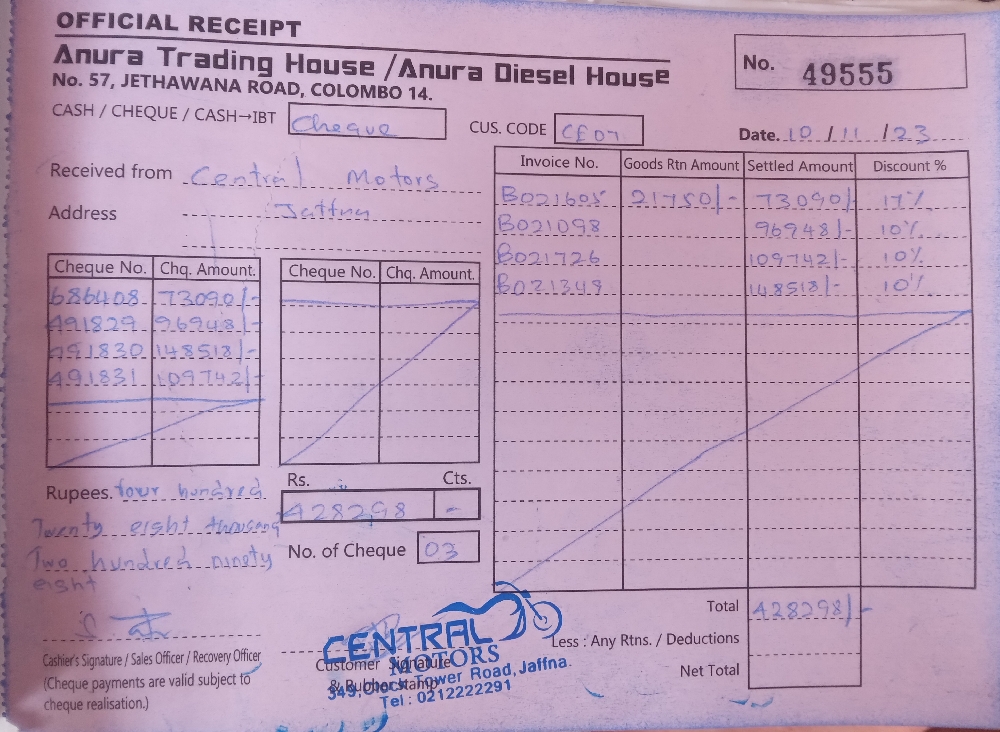 OFFICIAL RECEIPT
Anura Trading House / Anura Diesel House
No. 57, JETHAWANA ROAD, COLOMBO 14.
No. 49555
CASH / CHEQUE / CASH→IBT Cheque
CUS. CODE CE07
Date. 10 / 11 / 23
Received from Central Motors
Address Jaffna
Invoice No. Goods Rtn Amount Settled Amount Discount %
B021605 21750/- 73090/- 17%
B021098 96948/- 10%
B021726 109742/- 10%
B021349 148518/- 10%
Cheque No. Chq. Amount. Cheque No. Chq. Amount.
686408 73090/-
491829 96948/-
491830 148518/-
491831 109742/-
Rupees. four hundred
Twenty eight thousand
Two hundred ninety
eight
Rs. Cts.
428298 -
No. of Cheque 03
Total 428298/-
Less : Any Rtns. / Deductions
Net Total
Cashier's Signature / Sales Officer / Recovery Officer
(Cheque payments are valid subject to
cheque realisation.)
Customer Signature
& Rubber stamp
CENTRAL
MOTORS
349, Clock Tower Road, Jaffna.
Tel : 0212222291